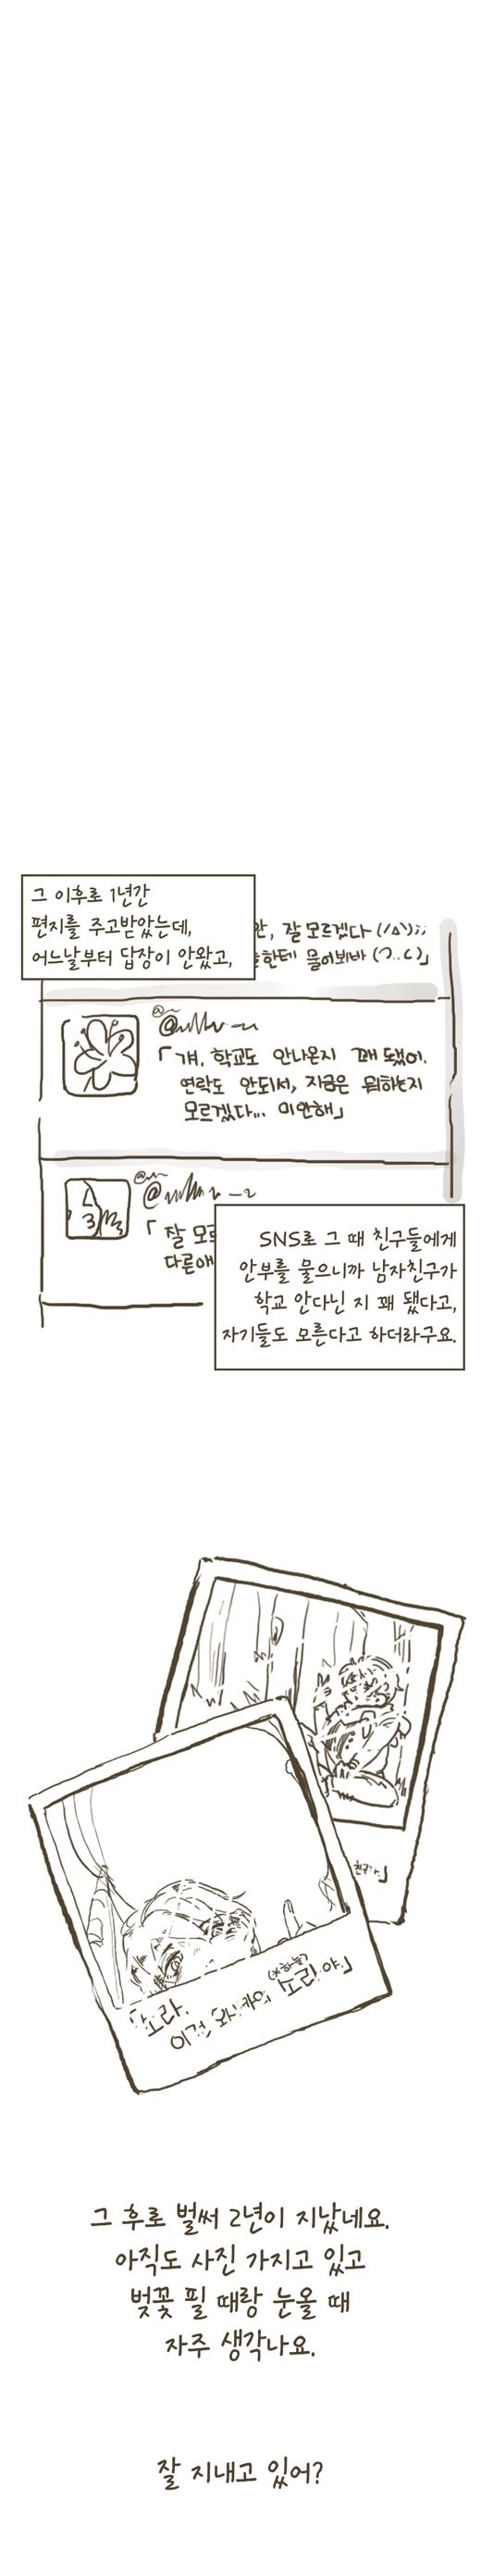 그 이후로 1년간
편지를 주고받았는데,
어느날부터 답장이 안왔고,
잘모르겠다 (/∆\);;
한테 물어봐바 (ㄱ..ㄷ)」
「걔, 학교도 안나온지 꽤 됐어.
연락도 안되서, 지금은 뭐하는지
모르겠다... 미안해」
「잘
다른애
SNS로 그 때 친구들에게
안부를 물으니까 남자친구가
학교 안다닌 지 꽤 됐다고,
자기들도 모른다고 하더라구요.
노라,
이건
(*하늘)
소라!야」
그 후로 벌써 2년이 지났네요.
아직도 사진 가지고 있고
벚꽃 필 때랑 눈올 때
자주 생각나요.
잘 지내고 있어?